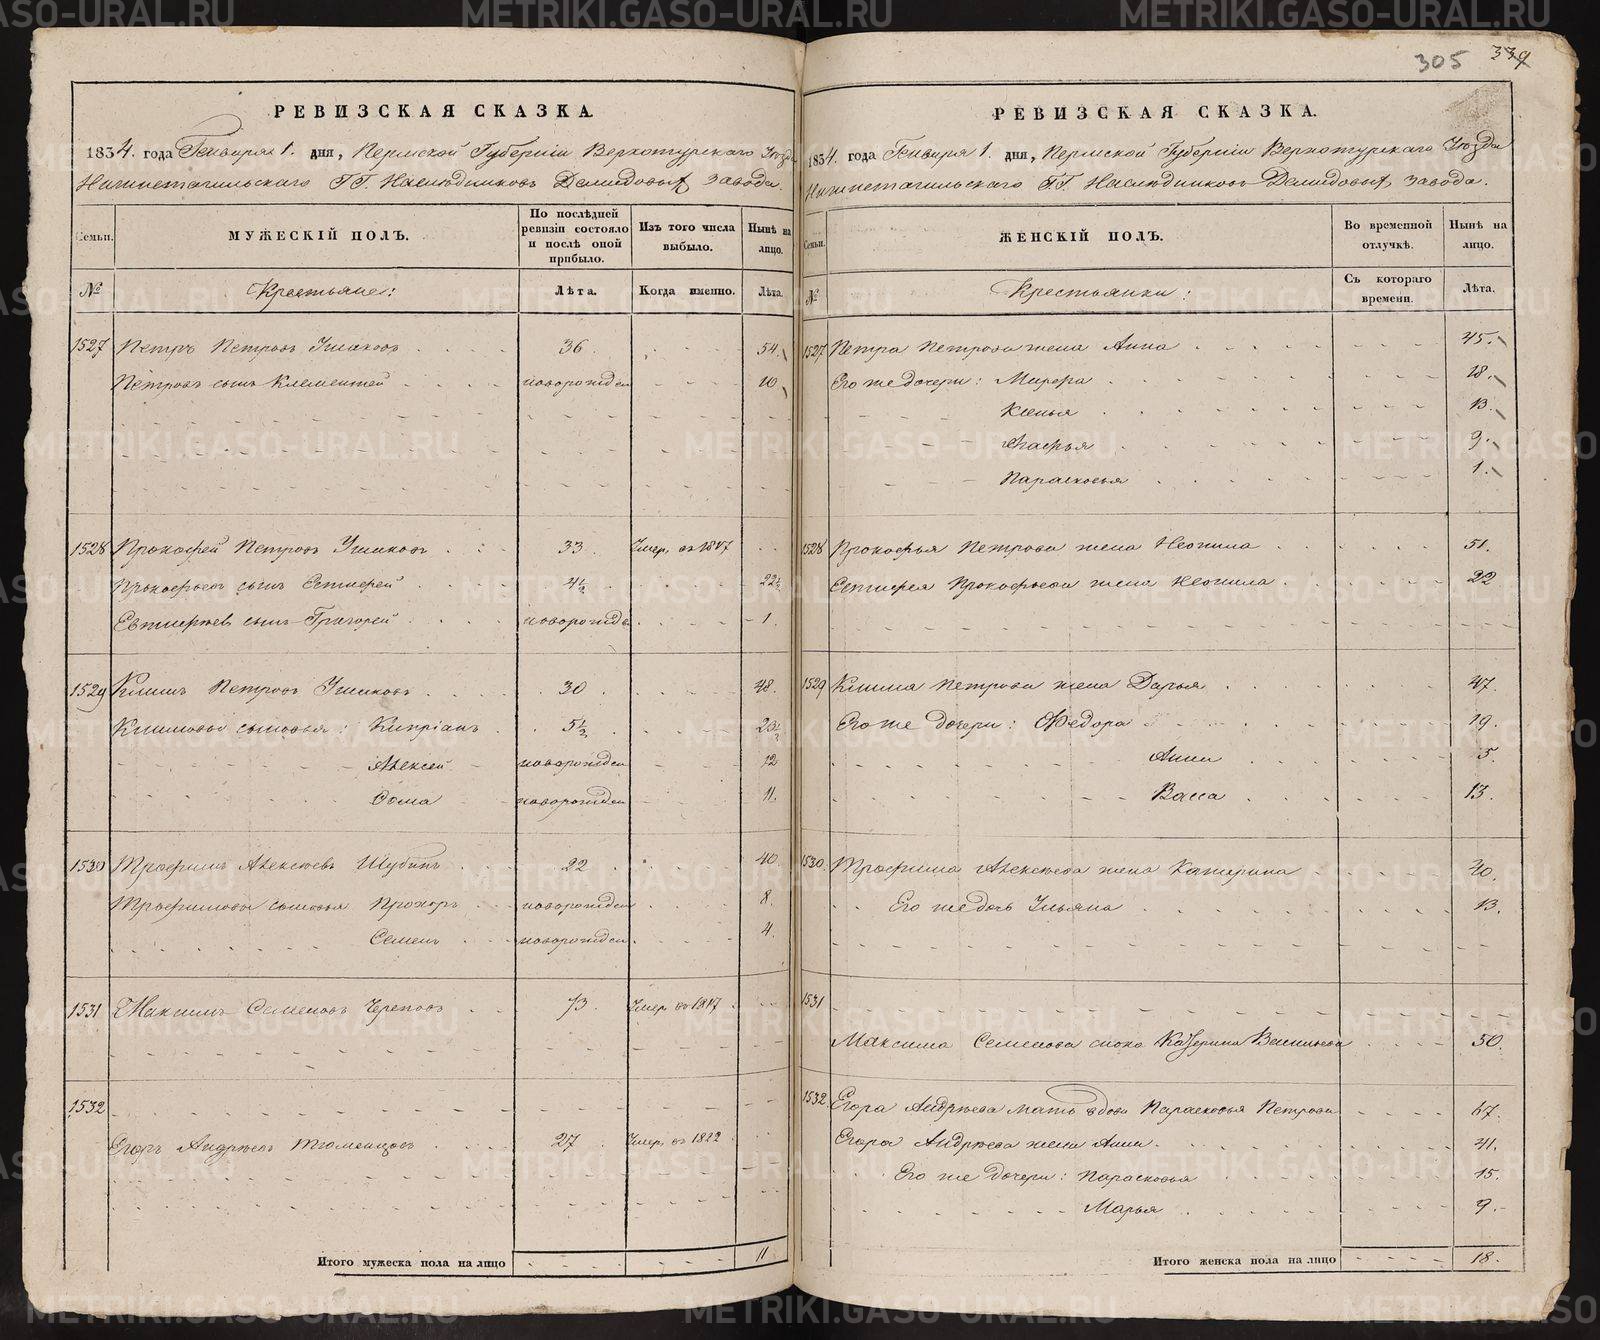 305 339
РЕВИЗСКАЯ СКАЗКА.
1834. года Генваря 1. дня, Пермской Губерніи Верхотурскаго Уѣзда
Нижнетагильскаго ГГ. Наслѣдниковъ Демидовыхъ завода.
Семьи. МУЖЕСКІЙ ПОЛЪ. По послѣдней ревизіи состояло и послѣ оной прибыло. Изъ того числа выбыло. Нынѣ на лицо.
№ Крестьяне: Лѣта. Когда именно. Лѣта.
1527 Петръ Петровъ Ушаковъ 36. 54.
Петровъ сынъ Клементей новорожден 10
1528 Прокофей Петровъ Ушаковъ 33. Умер. въ 1817
Прокофьевъ сынъ Евтифей 4½ 22½
Евтифѣев сынъ Григорей новорожде 1.
1529 Климъ Петровъ Ушаковъ 30 48.
Климовы сыновья: Кипріанъ 5½ 23½
Алексей новорожден 12
Фома новорожден 11.
1530 Трофимъ Алексѣевъ Шубинъ 22 40.
Трофимовы сыновья Прохоръ новорожден 8.
Семенъ новорожден. 4.
1531 Максимъ Семеновъ Череповъ 73. Умер. въ 1817
1532
Егоръ Андрѣевъ Тюменцовъ 27 Умер. въ 1822
Итого мужеска пола на лицо 11
РЕВИЗСКАЯ СКАЗКА.
1834. года Генваря 1. дня, Пермской Губерніи Верхотурскаго Уѣзда
Нижнетагильскаго ГГ. Наслѣдниковъ Демидовыхъ завода.
Семьи. ЖЕНСКІЙ ПОЛЪ. Во временной отлучкѣ. Нынѣ на лицо.
№ Крестьянки: Съ котораго времени. Лѣта.
1527 Петра Петрова жена Анна 45.
Его же дочери: 18.
Ксенья 13.
9.
Парасковья 1.
1528 Прокофья Петрова жена Неонила 51.
Евтифея Прокофьева жена Неонила 22
1529 Клима Петрова жена Дарья 47.
Его же дочери: Федора 19.
Анна 15.
Васса 13.
1530. Трофима Алексѣева жена Катерина 40.
Его же дочь Ульяна 13.
1531
Максима Семенова сноха Катерина Васильева 50.
1532 Егора Андрѣева мать вдова Парасковья Петрова 67.
Егора Андрѣева жена Анна 41.
Его же дочери: Парасковья 15.
Марья 9.
Итого женска пола на лицо 18.
METRIKI.GASO-URAL.RU